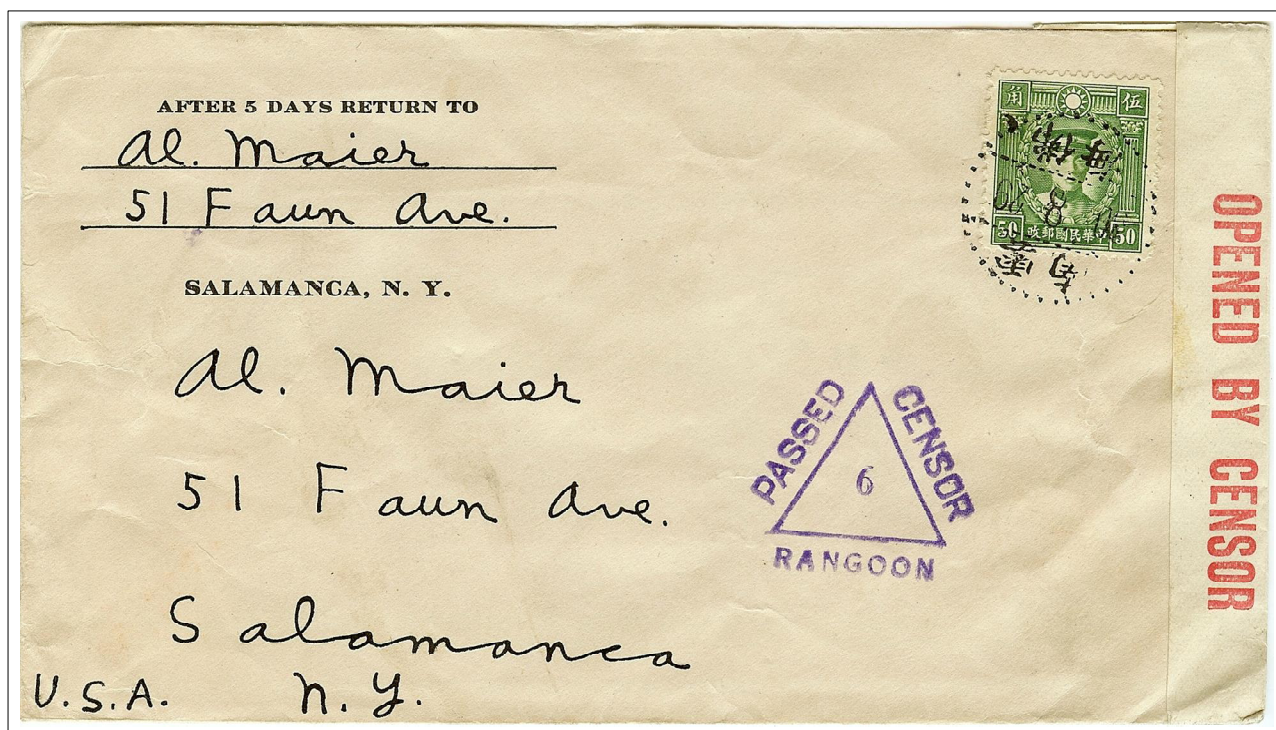 AFTER 5 DAYS RETURN TO
Al. Maier
51 Faun Ave.
SALAMANCA, N. Y.
角 伍
50 政郵國民華中 50
Al. Maier
51 Faun Ave.
Salamanca
U.S.A. N.Y.
PASSED CENSOR
6
RANGOON
OPENED BY CENSOR